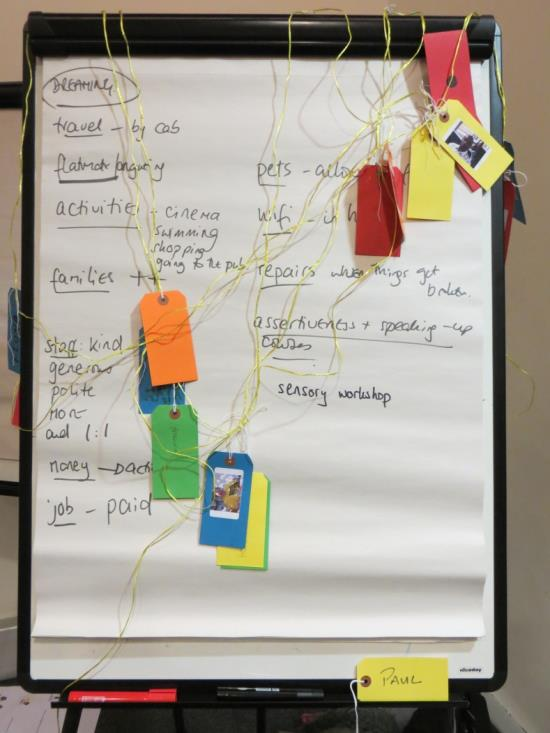 DREAMING
travel - by cab
flatmate
activities - cinema
swimming
shopping
going to the pub
families
staff: kind
generous
polite
MORE
and 1:1
money
job - paid
pets
wifi - in
repairs when things get
broken.
assertiveness + speaking-up
courses
sensory workshop
nobo
PAUL